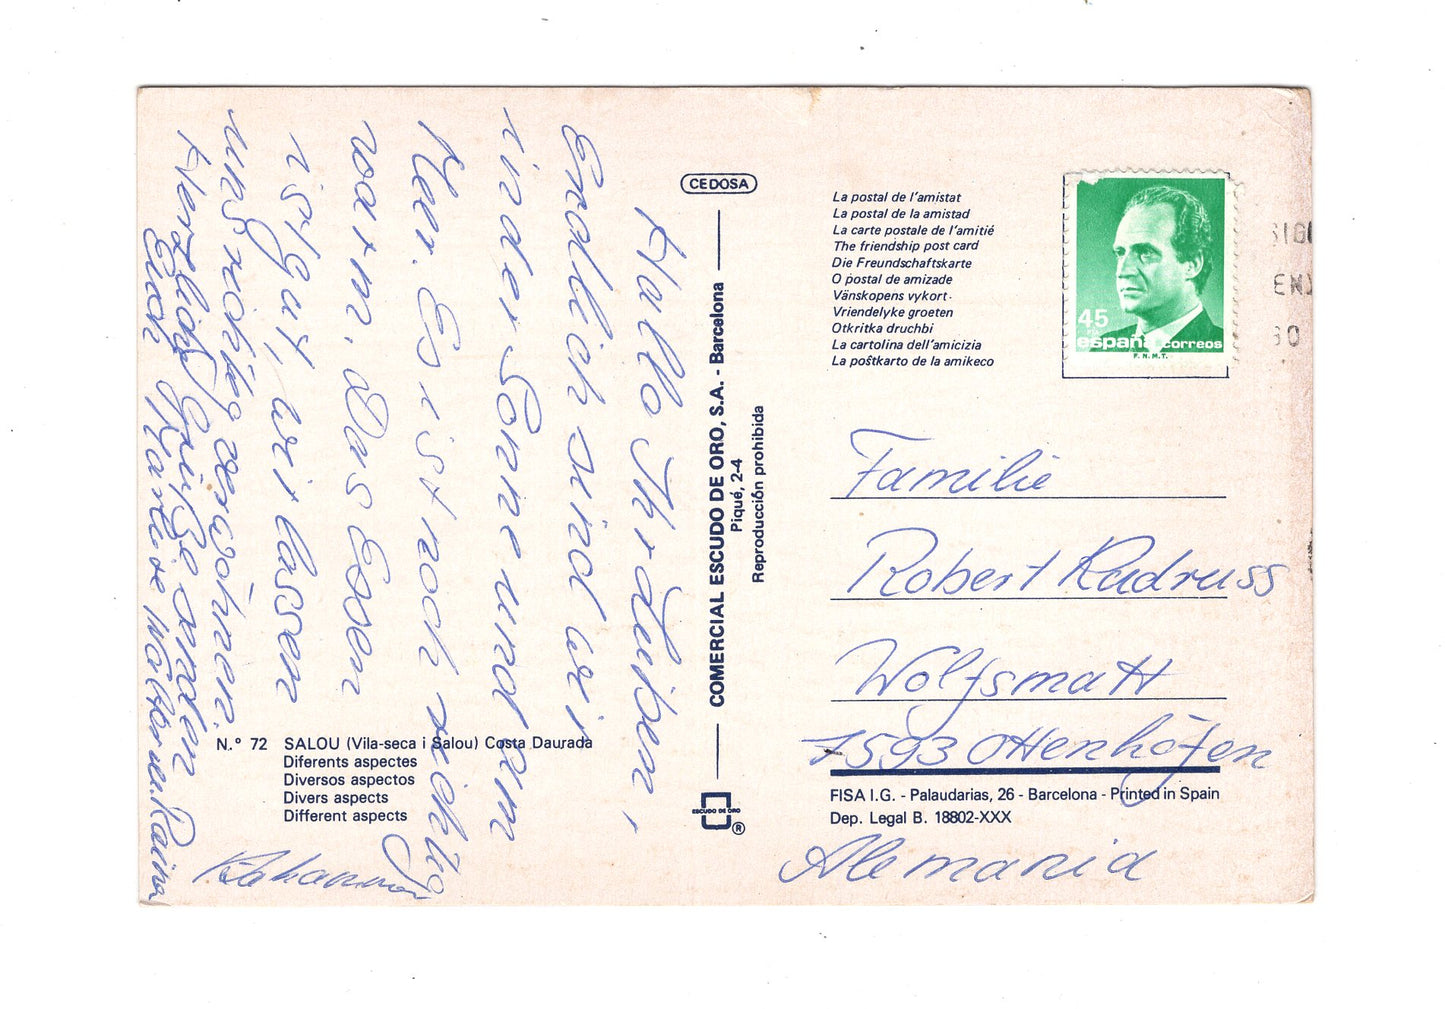 Hallo Ihr Lieben,
Endlich sind wir
in der Sonne und am
Meer. Es ist noch richtig
warm. Das Essen
ist gut, wir lassen
uns richtig verwöhnen.
Herzliche Grüße senden
Euch Marliese Walter u. Raina
Johanna
CEDOSA
COMERCIAL ESCUDO DE ORO, S.A. - Barcelona
Piqué, 2-4
Reproducción prohibida
ESCUDO DE ORO
®
N.º 72 SALOU (Vila-seca i Salou) Costa Daurada
Diferents aspectes
Diversos aspectos
Divers aspects
Different aspects
La postal de l'amistat
La postal de la amistad
La carte postale de l'amitié
The friendship post card
Die Freundschaftskarte
O postal de amizade
Vänskopens vykort
Vriendelyke groeten
Otkritka druchbi
La cartolina dell'amicizia
La poŝtkarto de la amikeco
45
PTA
españa correos
F.N.M.T.
Familie
Robert Kadruss
Wolfsmatt
7593 Ottenhöfen
FISA I.G. - Palaudarias, 26 - Barcelona - Printed in Spain
Dep. Legal B. 18802-XXX
Alemania